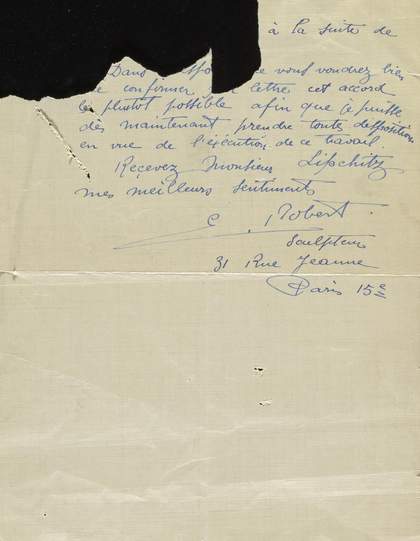 à la suite de
Dans l'espoir que vous voudrez bien
me confirmer par lettre cet accord
le plustot possible afin que je puisse
dès maintenant prendre toutes dispositions
en vue de l'exécution de ce travail.
Reçevez Monsieur Lipchitz
mes meilleurs sentiments
C. Robert
Sculpteur
31 Rue Jeanne
Paris 15e